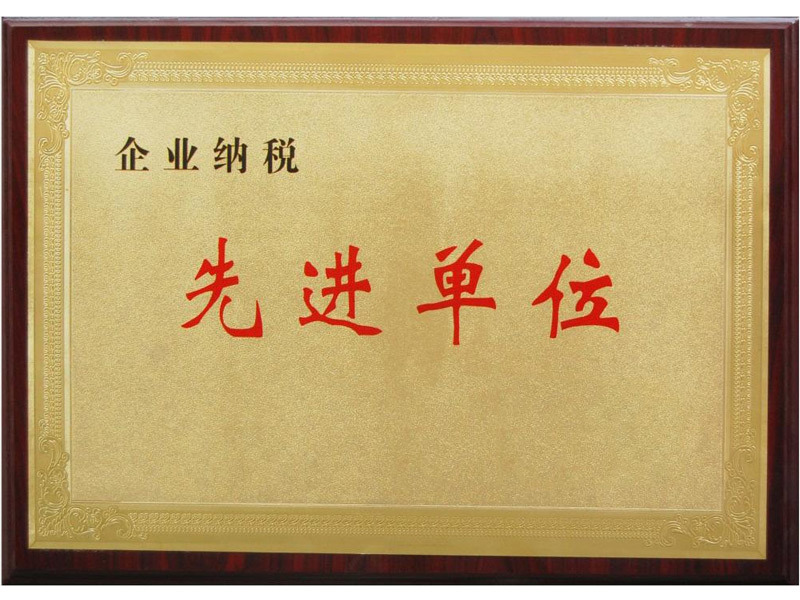 企业纳税
先进单位